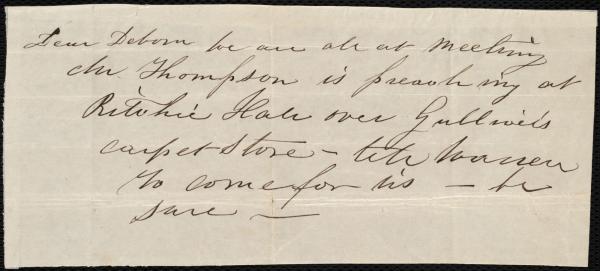 Dear Deborn we are all at Meeting
Mr. Thompson is preaching at
Ritchie Hall over Gulliver's
carpet store – tell Warren
to come for us – be
sure –